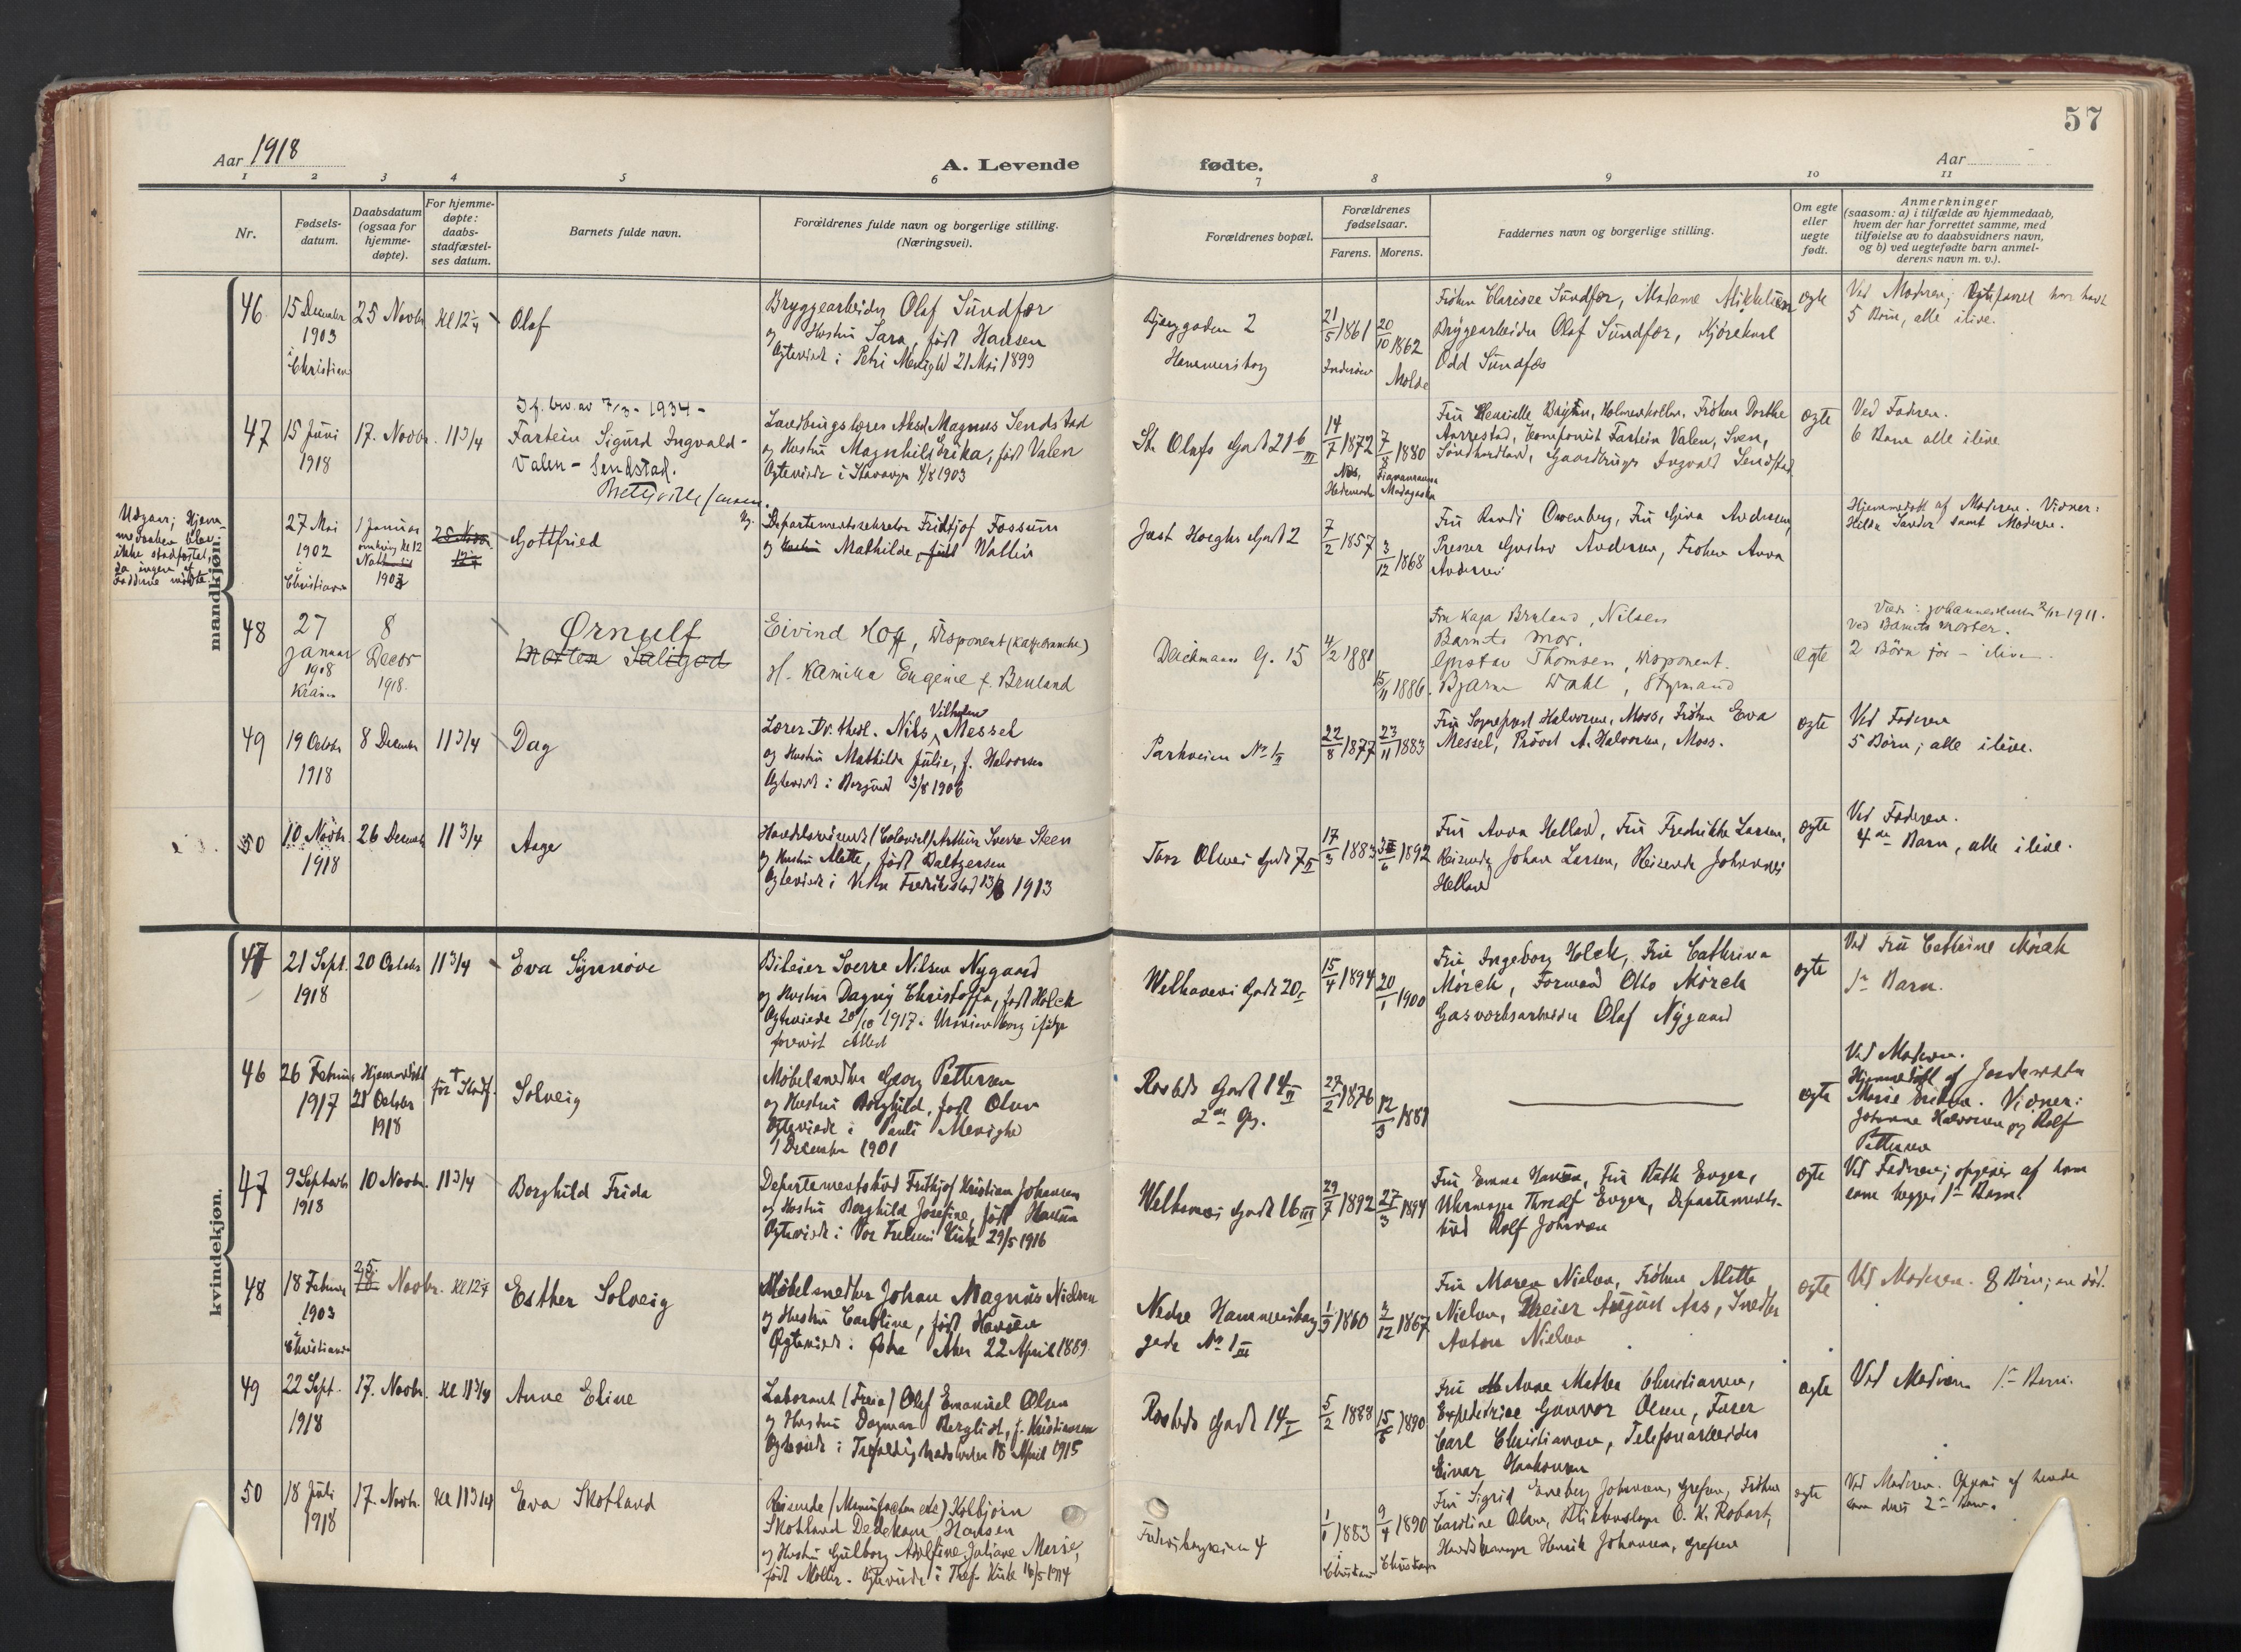 57
Aar 1918
A. Levende
fødte.
Aar
1 2 3 4 5 6 7 8 9 10 11
Nr.
Fødsels-
datum.
Daabsdatum
(ogsaa for
hjemme-
døpte).
For hjemme-
døpte:
daabs-
stadfæstel-
ses datum.
Barnets fulde navn.
Forældrenes fulde navn og borgerlige stilling.
(Næringsvei).
Forældrenes bopæl.
Forældrenes
fødselsaar.
Farens. Morens.
Faddernes navn og borgerlige stilling.
Om egte
eller
uegte
født.
Anmerkninger
(saasom: a) i tilfælde av hjemmedaab,
hvem der har forrettet samme, med
tilføielse av to daabsvidners navn,
og b) ved uegtefødte barn anmel-
derens navn m. v.).
mandkjøn.
46
15 December
1903
i
Christiania
25 Novbr.
Kl 12 1/4
Olaf
Bryggearbeider Olaf Sundfær
og Hustru Sara, født Hansen
Ægteviede i Petri Menighed 21 Mai 1899
2
Hammersborg
21/5 1861
20/10 1862
Molde
Frøken Clarisse Sundfær, Madame Mikkelsen
Bryggearbeider Olaf Sundfær, Kjørekarl
Odd Sundfær
ægte
Ved Moderen; Ægteparret har havt
5 Børn, alle ilive.
47
15 Juni
1918
17. Novbr.
11 3/4
If. bev. av 7/3 - 1934 -
Fartein Sigurd Ingvald-
Valen-Sendstad.
Landbrugslærer Aksel Magnus Sendstad
og Hustru Magnhild Erika, født Valen
Ægteviede i Stavanger 4/8 1903
St. Olafs Gade 21 b III
14/7 1872
Nes,
Hedemarken
7/8 1880
Fianarantsoa
Madagaskar
Holmenkollen, Frøken Dorthe
Aarrestad, Komponist Fartein Valen, Sveen,
Søndhordland, Gaardbruger Ingvald Sendstad
ægte
Ved Faderen.
6 Barn alle ilive
Udgaar; Hjem-
medaaben blev
ikke stadfæstet,
da ingen af
Fadderne mødte.
27 Mai
1902
i
Christiania
1 Januar
omkring Kl 12
Nat
1903
25 Nov.
12 1/4
Gottfried
Departementssekretær Fridtjof Fossum
og Hustru Mathilde, født Wallin
Just Hoeghs Gade 2
7/2 1857
3/12 1868
Fru Randi Owenberg, Fru Gina Andersen,
Presser Gustav Andersen, Frøken Anna
Andersen
Hjemmedøbt af Moderen. Vidner:
Helda Sander samt Moderen.
48
27
januar
1908
Kr.ania
8
Decbr
1918.
Ørnulf
Morten Saligod
Eivind Hoff, Disponent (Kaffebranche)
H. Kamilla Eugenie f. Bruland
Deichmans G. 15
4/2 1881
15/11 1886.
Fru Kaja Bruland, Nilsen
Barnets mor.
Gustav Thomsen, Disponent.
Bjarne Wahl, Styrmand
ægte
Viede: Johanneskirken 2/12 1911.
Ved Barnets moder.
2 Børn før - ilive.
49
19 Octobr
1918
8 December
11 3/4
Dag
Lærer Dr. theol. Nils Vilhelm Messel
og Hustru Mathilde Julie, f. Halvorsen
Ægteviede i Borgund 3/8 1906
Parkveien No 1 II
22/8 1877
23/11 1883
Fru Sogneprest Halvorsen, Moss, Frøken Eva
Messel, Provst A. Halvorsen, Moss.
ægte
Ved Faderen
5 Børn; alle ilive.
50
10 Novbr.
1918
26 Decembr
11 3/4
Aage
Handelsreisende (Colonial) Arthur Sverre Steen
og Hustru Alette, født Baltzersen
Ægteviede i Vestre Fredrikstad 1913
Tors Olsens Gade 7 II
17/3 1883
1892
Fru Anna Helland, Fru Fredrikke Larsen,
Reisende Johan Larsen, Reisende Johannes
Helland
ægte
Ved Faderen.
4de Barn, alle ilive.
kvindekjøn.
21 Sept.
1918
20 Octobr
11 3/4
Eva Synnøve
Bileier Sverre Nilsen Nygaard
og Hustru Dagny Christoffa, født Holck
Ægteviede 20/10 1917 i Uranienborg ifølge
forevist Attest
Welhavens Gade 20 I
15/4 1894
20/1 1900
Fru Ingeborg Holck, Fru Cathrine
Mørch, Formand Otto Mørch
Gasverksarbeider Olaf Nygaard
ægte
Ved Fru Cathrine Mørch
1ste Barn.
46
26 Februar
1917
Hjemmedøbt
28 October
1918
† før Stadf.
Solveig
Møbelsnedker Georg Pettersen
og Hustru Borghild, født Olsen
Ægteviede i Pauli Menighed
1 December 1901
Rosteds Gade 14 II
2den Opg.
27/2 1876
12/3 1881
ægte
Ved Moderen.
Hjemmedøbt af Jordemoder
Marie. Vidner:
Johanne Halvorsen og Rolf
Pettersen
47
9 Septembr
1918
10 Novbr.
11 3/4
Borghild Frida
Departementsbud Frithjof Kristian Johansen
og Hustru Borghild Josefine, født Hansen
Ægteviede i Vor Frelsers Kirke 29/5 1916
Welhavens Gade 16 III
29/7 1892
27/3 1894
Fru Emma Hansen, Fru Ruth Enger,
Uhrmager Thoralf Enger, Departements-
bud Rolf Johansen
ægte
Ved Faderen; opgives af ham
som begges 1ste Barn.
48
18 Februar
1903
i
Christiania
25.
18 Novbr.
Kl 12 1/4
Esther Solveig
Møbelsnedker Johan Magnus Nielsen
og Hustru Caroline, født Hansen
Ægteviede i Østre Aker 22 April 1889
Nedre Hammersborg
gade No 1 III
1/9 1860
1867
Fru Maren Nielsen, Frøken Alette
Nielsen, Dreier August Aas, Snedker
Anton Nielsen
ægte
Ved Moderen. 8 Børn; en død.
49
22 Sept.
1918
17. Novbr.
Kl 11 3/4
Anne Eline
Laborant (Freia) Olaf Emanuel Olsen
og Hustru Dagmar Bergliot, f. Kristiansen
Ægteviede i Trefoldighedskirken 18 April 1915
Rosteds Gade 14 I
5/2 1888
15/5 1890
Fru Anne Mathea Christiansen,
Expeditrice Gunvor Olsen, Fører
Carl Christiansen, Telefonarbeider
Einar Haakonsen
ægte
Ved Moderen 1ste Barn.
50
18 Juli
1918
17. Novbr.
Kl 11 3/4
Eva Skotland
Reisende (Manufactur etc) Kolbjørn
Skotland Dedekam Hansen
og Hustru Gulborg Adolfine Juliane Marie,
født Møller. Ægteviede i Tref. Kirke 16/5 1914
4
1/1 1883
i
Christiania
9/4 1890
Christiania
Fru Sigrid Enneberg Johansen, Grefsen, Frøken
Caroline Olsen, Blikkenslager O. K. Robart,
Henrik Johansen, Grefsen
ægte
Ved Moderen. Opgives af hende
som deres 2det Barn.